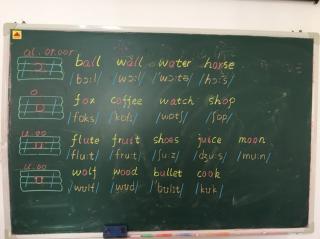 al. or. oor
ɔː
ball wall water horse
/bɔːl/ /wɔːl/ /wɔːtə/ /hɔːs/
o
ɒ
fox coffee watch shop
/fɒks/ /kɒfi/ /wɒtʃ/ /ʃɒp/
u. oo
uː
flute fruit shoes juice moon
/fluːt/ /fruːt/ /ʃuːz/ /dʒuːs/ /muːn/
u. oo
ʊ
wolf wood bullet cook
/wʊlf/ /wʊd/ /bʊlɪt/ /kʊk/